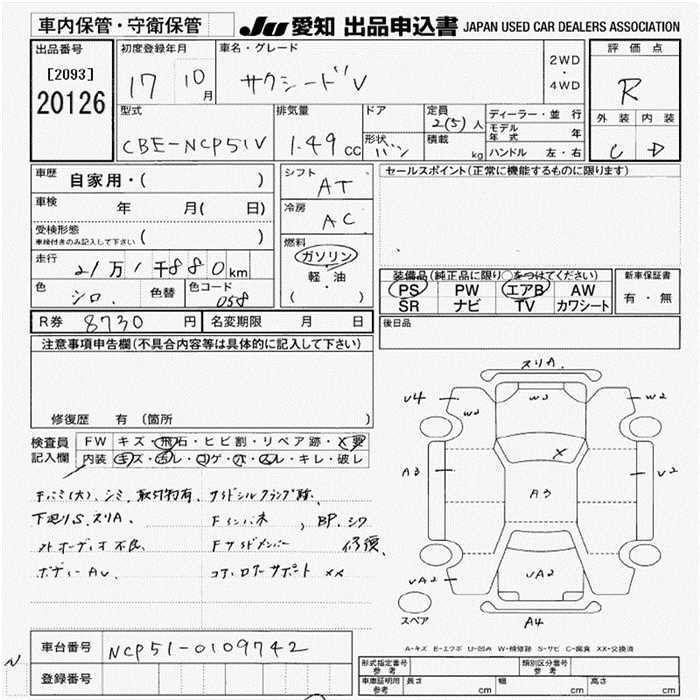 車内保管・守衛保管
JU 愛知 出品申込書 JAPAN USED CAR DEALERS ASSOCIATION
出品番号
[2093]
20126
初度登録年月
17 10月
車名・グレード
サクシードV
2WD
・
4WD
評価点
R
型式
CBE-NCP51V
排気量
1.49cc
ドア
形状 バン
定員
2(5)人
積載 kg
ディーラー・並行
モデル年式 年
ハンドル 左・右
外装 内装
C D
車歴 自家用・( )
車検 年 月( 日)
受検形態
車検付きのみ記入して下さい ( )
走行
21万1千880km
色 シロ 色替 色コード 058
シフト
AT
冷房
AC
燃料
ガソリン
・
軽・油
( )
セールスポイント(正常に機能するものに限ります)
装備品(純正品に限り○をつけてください)
PS PW エアB AW
SR ナビ TV カワシート
新車保証書
有・無
R券 8730円 名変期限 月 日
後日品
注意事項申告欄(不具合内容等は具体的に記入して下さい)
修復歴 有(箇所 )
検査員記入欄
FW キズ・飛石・ヒビ割・リペア跡・X要
内装 キズ・汚レ・コゲ・穴・スレ・キレ・破レ
キバミ(大)、シミ、取引物有、サイドシルクランプ跡、
下廻りS、スリA、 Fインパネ、BP、シワ
社外オーディオ不良 Fサイドメンバー 修復
ボディーAU コアロアーサポートXX
スリA
U4 W2 W3 W2
X
A3 A3 U2
UA2 UA2
A4
スペア
A-キズ E-エクボ U-凹み W-補修跡 S-サビ C-腐食 XX-交換済
車台番号 NCP51-0109742
登録番号
N
形式指定番号 参考
類別区分番号 参考
車庫証明用 参考 長さ cm 幅 cm 高さ cm